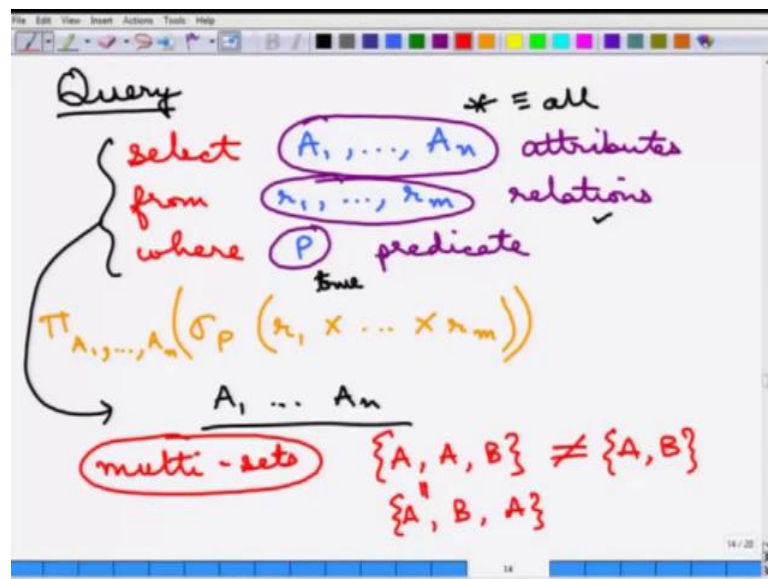 File Edit View Insert Actions Tools Help
Query
* ≡ all
select A₁, ..., Aₙ attributes
from r₁, ..., rₘ relations
where P predicate
true
π A₁, ..., Aₙ (σ P (r₁ × ... × rₘ))
A₁ ... Aₙ
multi-sets {A, A, B} ≠ {A, B}
{A, B, A}
14 / 20
14